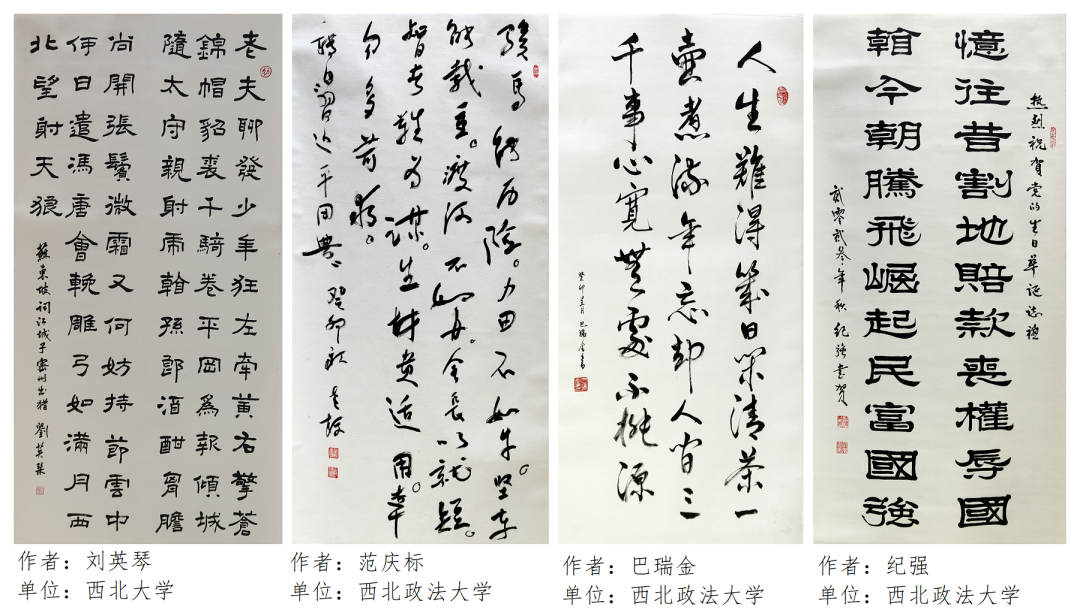 老夫聊發少年狂左牽黃右擎蒼
錦帽貂裘千騎卷平岡為報傾城
隨太守親射虎看孫郎酒酣胷膽
尚開張鬢微霜又何妨持節雲中
何日遣馮唐會輓雕弓如滿月西
北望射天狼
蘇東坡詞江城子密州出猎 劉英琴
骏馬能历险。力田不如牛。坚车
能载重。渡河不如舟。舍长以就短。
智者难为谋。生材贵适用。幸
勿多苛求。
摘自習近平用典 癸卯秋 庆标
人生難得幾日閑清茶一
壺煮流年忘却人间三
千事心寬無處不桃源
癸卯 月 巴瑞金書
热烈祝賀党的生日華诞誌禮
憶往昔割地賠款喪權辱國
看今朝騰飛崛起民富國強
贰零贰叁年秋 纪强書賀
作者：刘英琴
单位：西北大学
作者：范庆标
单位：西北政法大学
作者：巴瑞金
单位：西北政法大学
作者：纪强
单位：西北政法大学